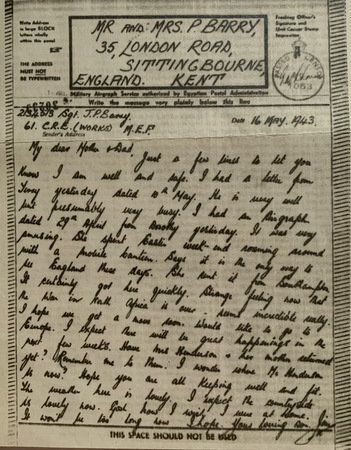 Write Address
in large BLOCK
letters wholly
within this panel
THE ADDRESS
MUST NOT
BE TYPEWRITTEN
MR AND MRS. P. BARRY,
35, LONDON ROAD,
SITTINGBOURNE,
ENGLAND. KENT
Passing Officer's
Signature and
Unit Censor Stamp
Impression
Military Airgraph Service authorized by Egyptian Postal Administration
Write the message very plainly below this line
Sgt. J.P. Barry.
61. C.R.E. (WORKS) M.E.F.
Sender's Address
Date 16 May. 1943.
My dear Mother & Dad. Just a few lines to let you
know I am well and safe. I had a letter from
yesterday dated May. He is very well
but presumably very busy. I had an Airgraph
dated 29th April from Dorothy yesterday. It was very
amusing. She spent Easter week-end roaming around
with a mobile canteen. Says it is the only way to
see England these days. She sent it from Southampton
It certainly got here quickly. Strange feeling now that
the war in North Africa is over, seems incredible really.
I hope we get a move soon. Would like to go to
Europe. I expect there will be great happenings in the
next few weeks. Have Mrs Henderson & her mother returned
yet? Remember me to them. I wonder where Mr Henderson
is now? Hope you are all keeping well and fit.
The weather here is lovely. I expect the countryside
is lovely now. God how I wish I was at home.
It won't be too long now I hope. Your loving Son, Jim
THIS SPACE SHOULD NOT BE USED